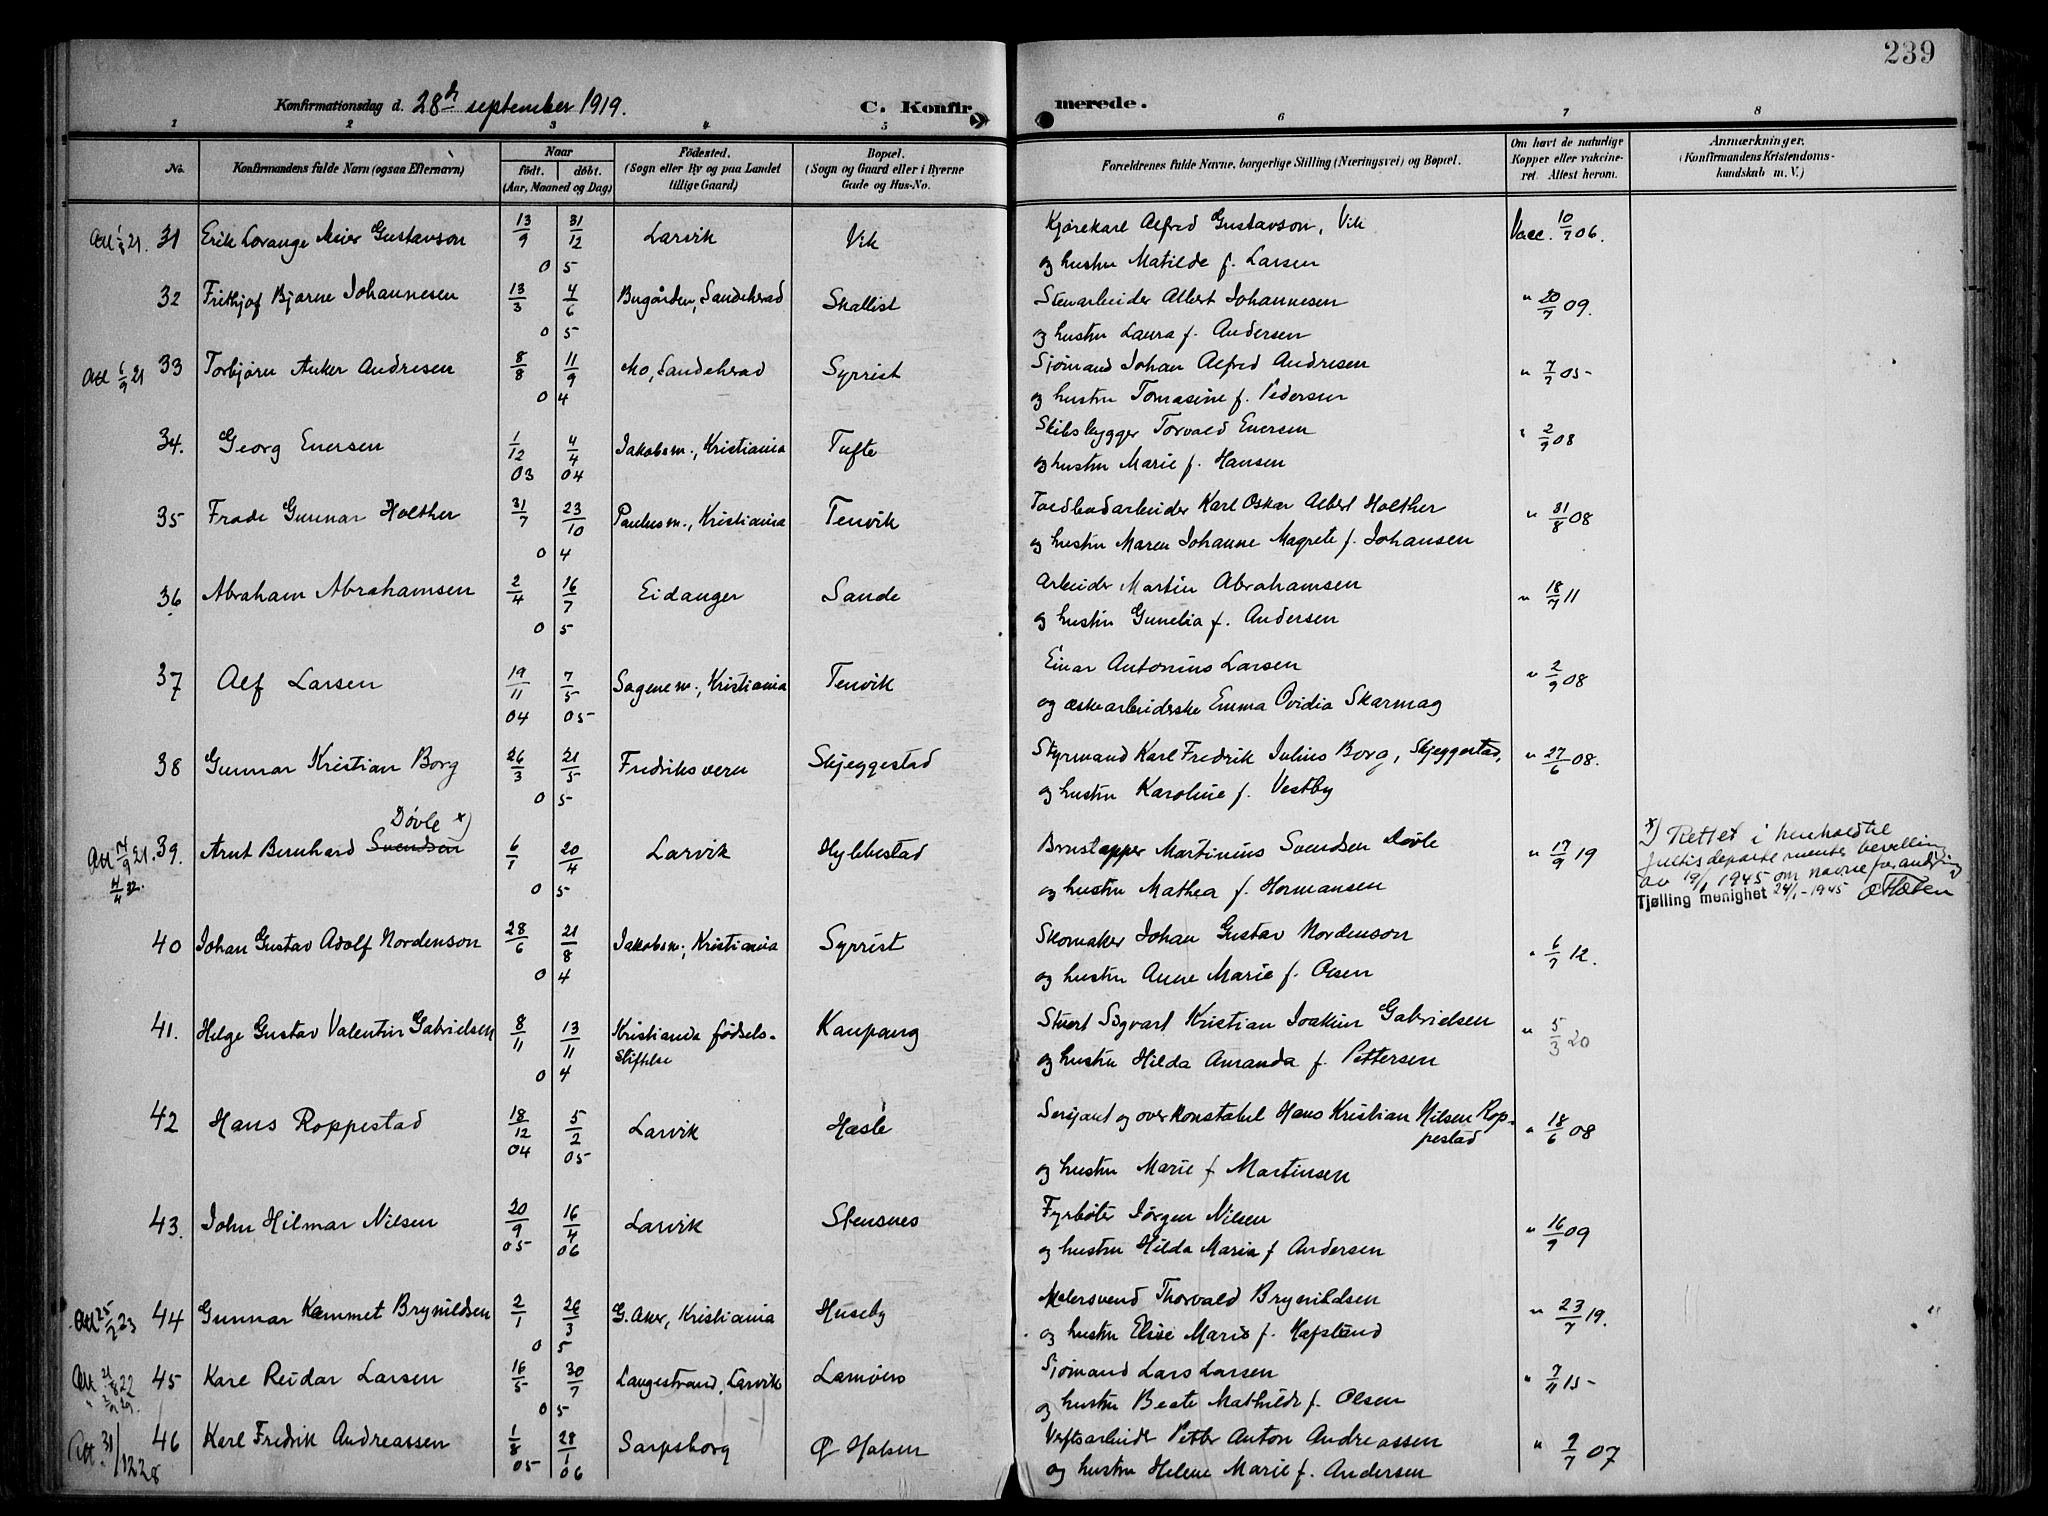 239
Konfirmationsdag d. 28de september 1919.
C. Konfirmerede.
1 2 3 4 5 6 7 8
No. Konfirmandens fulde Navn (ogsaa Efternavn) Naar født. døbt. (Aar, Maaned og Dag) Fødested. (Sogn eller By og paa Landet tillige Gaard) Bopæl. (Sogn og Gaard eller i Byerne Gade og Hus-No. Forældrenes fulde Navne, borgerlige Stilling (Næringsvei) og Bopæl. Om havt de naturlige Kopper eller vaccineret. Attest herom. Anmærkninger. (Konfirmandens Kristendomskundskab m. V.)
31 Erik Lorange Meier Gustavson 13/9 31/12 05 Larvik Vik Kjørekarl Alfred Gustavson, Vik Vacc. 10/7 06.
og hustru Matilde f. Larsen
32 Frithjof Bjarne Johannesen 13/3 4/6 05 Bugården, Sandeherad Skallist Stenarbeider Albert Johannesen " 20/7 09.
og hustru Laura f. Andersen
Att 6/9 21 33 Torbjørn Anker Andresen 8/8 11/9 04 Mo, Sandeherad Syrrist Sjømand Johan Alfred Andresen " 7/7 05
og hustru Tomasine f. Pedersen
34. Georg Enersen 1/12 03 4/4 04 Jakobsm., Kristiania Tufte Skibsbygger Torvald Enersen " 2/9 08
og hustru Marie f. Hansen
35 Frode Gunnar Holther 31/7 23/10 04 Paulusm., Kristiania Tenvik Toldbodarbeider Karl Oskar Albert Holther " 31/8 08
og hustru Maren Johanne Magrete f. Johansen
36 Abraham Abrahamsen 2/4 16/7 05 Eidanger Sande Arbeider Martin Abrahamsen " 18/7 11
og hustru Gunelia f. Andersen
37 Alf Larsen 19/11 04 7/5 05 Sagenem., Kristiania Tenvik Einar Antonius Larsen " 2/9 08
og æskearbeiderske Emma Ovidia Skarmag
38 Gunnar Kristian Borg 26/3 21/5 05 Fredriksvern Skjeggestad Styrmand Karl Fredrik Julius Borg, Skjeggestad, " 27/6 08.
og hustru Karoline f. Vestby
Døvle x)
Att 14/9 21. 4/4 32. 39. Arnt Bernhard Svendsen 6/1 20/4 05 Larvik Hybbestad Brustapper Martinius Svendsen Døvle " 17/9 19
og hustru Mathea f. Hermansen
x) Rettet i henhold til
justisdepartementets bevilling
av 19/1 1945 om navneforandring
Tjølling menighet 24/1-1945
40 Johan Gustav Adolf Nordenson 28/6 21/8 04 Jakobsm., Kristiania Syrrist Skomaker Johan Gustav Nordenson " 6/7 12.
og hustru Anne Marie f. Olsen
41. Helge Gustav Valentin Gabrielsen 8/11 13/11 04 Kristiania fødsels-stiftelse Kaupang Stuert Sigvart Kristian Joakim Gabrielsen " 5/3 20
og hustru Hilda Amanda f. Pettersen
42 Hans Roppestad 18/12 04 5/2 05 Larvik Hæsle Sersjant og overkonstabel Hans Kristian Nilsen Roppestad " 18/6 08
og hustru Marie f. Martinsen
43. John Hilmar Nilsen 20/9 05 16/4 06 Larvik Stensnes Fyrbøter Jørgen Nilsen " 16/9 09
og hustru Hilda Maria f Andersen
Att 25/2 23 44 Gunnar Kemmet Brynildsen 2/1 26/3 05 G. Aker, Kristiania Huseby Malersvend Thorvald Brynildsen " 23/7 19.
og hustru Elise Marie f. Hafstand
45 Kare Reidar Larsen 16/5 30/7 05 Langestrand, Larvik Lamøen Sjømand Lars Larsen " 7/11 15
og hustru Beate Mathilde f. Olsen
Att. 31/12 28 46 Karl Fredrik Andreassen 1/8 05 28/1 06 Sarpsborg Ø Halsen Verftsarbeider Petter Anton Andreassen " 9/7 07
og hustru Helene Marie f. Andersen